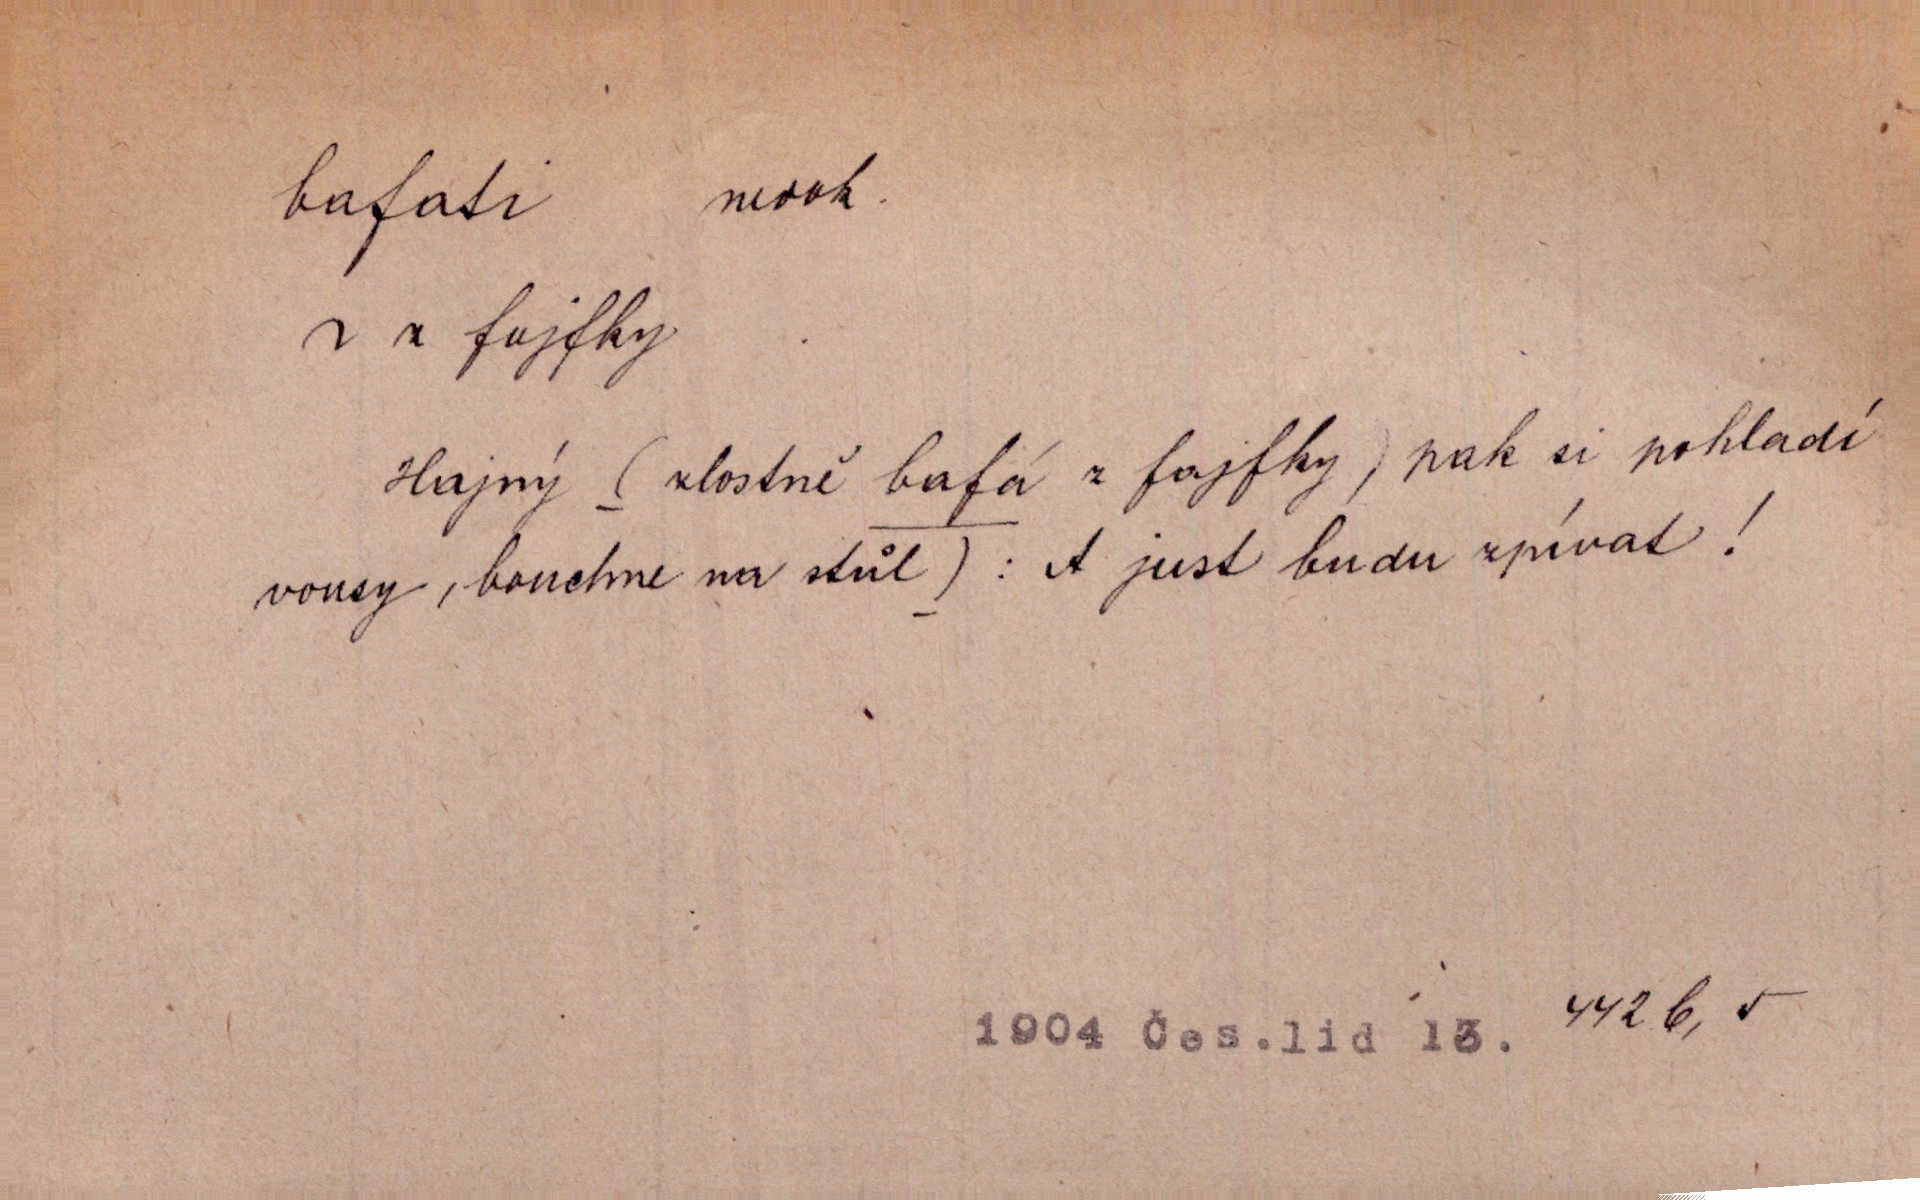 bafati nedok.
~ z fajfky
Hajný (zlostně bafá z fajfky, pak si pohladí
vousy, bouchne na stůl): A just budu zpívat!
1904 Čes.lid 13. 442 b, 5